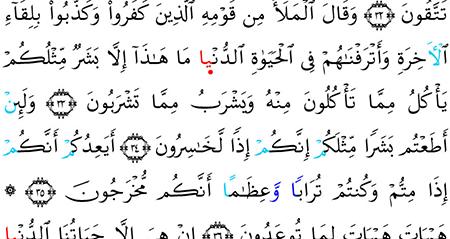 تَتَّقُونَ ٣٢ وَقَالَ ٱلْمَلَأُ مِن قَوْمِهِ ٱلَّذِينَ كَفَرُواْ وَكَذَّبُواْ بِلِقَآءِ
ٱلْأَخِرَةِ وَأَتْرَفْنَٰهُمْ فِي ٱلْحَيَوٰةِ ٱلدُّنْيا مَا هَٰذَآ إِلَّا بَشَرٌ مِّثْلُكُمْ
يَأْكُلُ مِمَّا تَأْكُلُونَ مِنْهُ وَيَشْرَبُ مِمَّا تَشْرَبُونَ ٣٣ وَلَئِنْ
أَطَعْتُم بَشَرًا مِّثْلَكُمْ إِنَّكُمْ إِذًا لَّخَٰسِرُونَ ٣٤ أَيَعِدُكُمْ أَنَّكُمْ
إِذَا مِتُّمْ وَكُنتُمْ تُرَابًا وَعِظَٰمًا أَنَّكُم مُّخْرَجُونَ ٣٥ ۞
هَيْهَاتَ هَيْهَاتَ لِمَا تُوعَدُونَ ٣٦ إِنْ هِيَ إِلَّا حَيَاتُنَا ٱلدُّنْيا